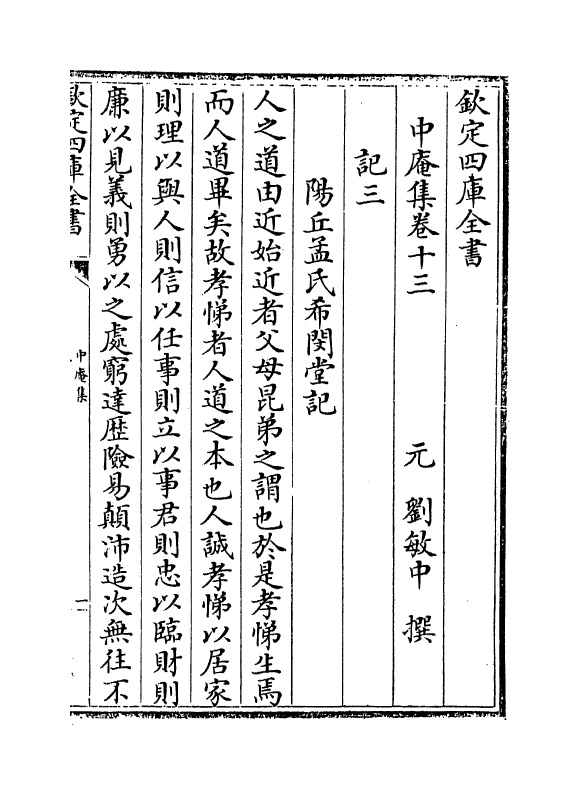 欽定四庫全書
中庵集卷十三
元 劉敏中 撰
記三
陽丘孟氏希閔堂記
人之道由近始近者父母昆弟之謂也於是孝悌生焉
而人道畢矣故孝悌者人道之本也人誠孝悌以居家
則理以與人則信以任事則立以事君則忠以臨財則
廉以見義則勇以之處窮達歷險易顛沛造次無往不
欽定四庫全書
中庵集
一